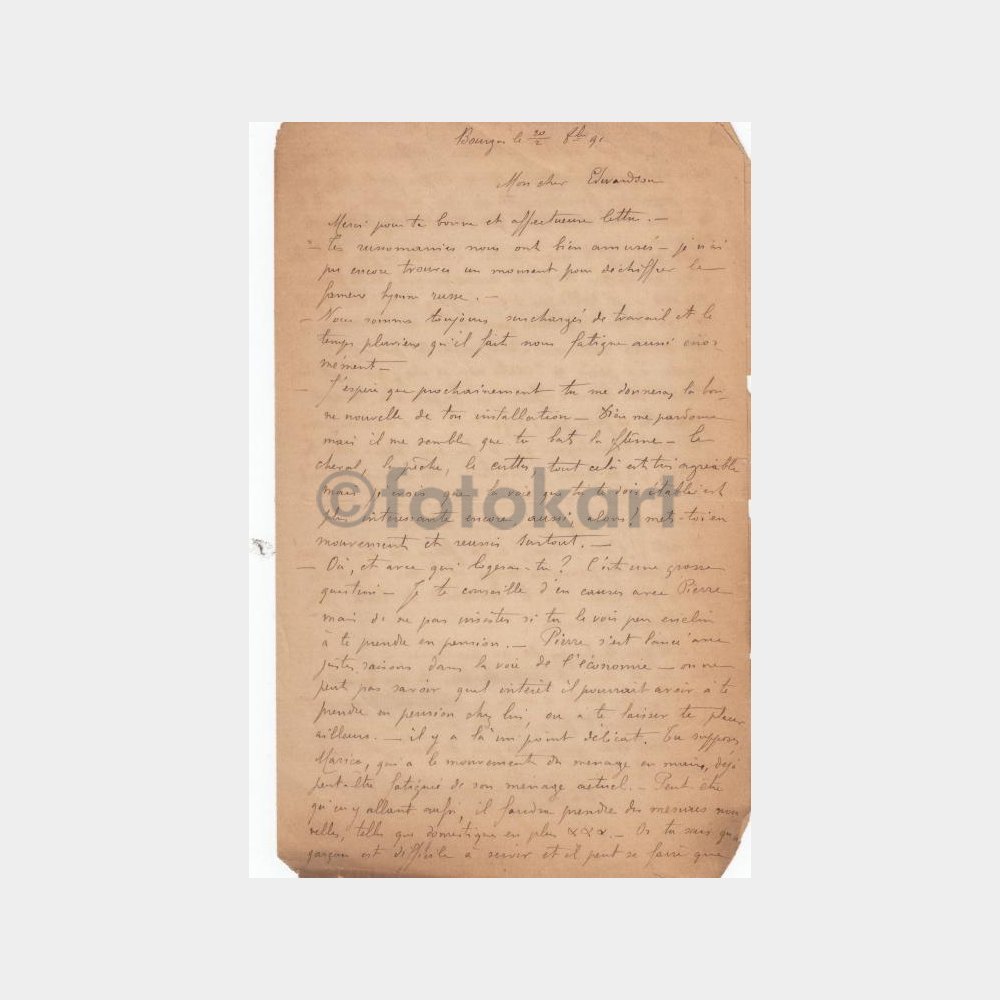 Bourges le 20/2 8bre 91
Mon cher Edwardson
Merci pour ta bonne et affectueuse lettre. —
— tes russomanies nous ont bien amusés — je n'ai
pu encore trouver un moment pour déchiffrer le
fameux hymne russe. —
— Nous sommes toujours surchargés de travail et le
temps pluvieux qu'il fait nous fatigue aussi énor-
mément —
— J'espère que prochainement tu me donneras la bon-
ne nouvelle de ton installation — Dieu me pardonne
mais il me semble que tu bats la flème — Le
cheval, la pêche, le cutter, tout cela est très agréable
mais je crois que la voie que tu dois établir est
plus intéressante encore aussi alons! mets-toi en
mouvement et réussis surtout. —
— Où, et avec qui logeras-tu? C'est une grosse
question — Je te conseille d'en causer avec Pierre
mais de ne pas insister si tu le vois peu enclin
à te prendre en pension. — Pierre s'est lancé avec
justes raisons dans la voie de l'économie — on ne
peut pas savoir quel intérêt il pourrait avoir à te
prendre en pension chez lui, ou a te laisser te placer
ailleurs. — il y a là un point délicat. Tu suppose
qui a le mouvement du ménage en mains, déjà
peut-être fatiguée de son ménage actuel. — Peut être
qu'en y allant aussi, il faudra prendre des mesures nou
velles, telles que domestique en plus xxx. — Or tu sais qu'un
garçon est difficile à servir et il peut se faire que
©fotokart